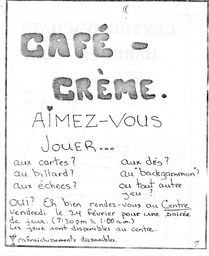 CAFÉ -
CRÈME.
AIMEZ-VOUS
JOUER...
aux cartes? aux dés?
au billard? au "backgammon"?
aux échecs? ou tout autre
jeu?
OUI? Eh bien rendez-vous au Centre
vendredi le 24 février pour une soirée
de jeux. (7:30 pm à 1:00 a.m.)
Les jeux sont disponibles au centre.
rafraîchissements disponibles.
7